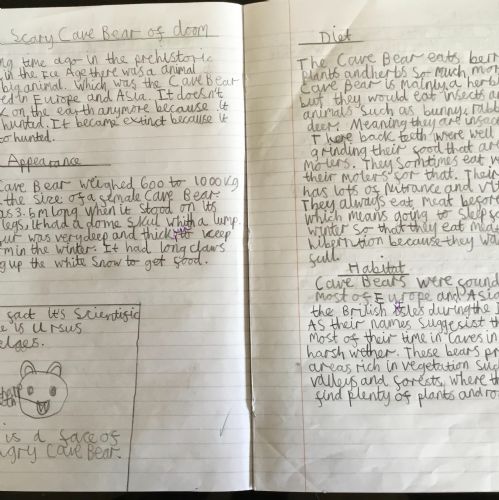 Scary Cave Bear of doom
ng time ago in the prehistoric
in the Ice Age there was a animal
big animal. which was the Cave Bear
ed in Europe and Asia. It doesn't
on the earth anymore because it
hunted. It became extinct because it
to hunted.
Appearance
Cave Bear weighed 600 to 1000kg
the size of a female Cave Bear.
as 3.6m long when it stood on its
legs. it had a dome skul whith a lump
ur was very deep and thick to keep
m in the winter. It had long claws
g up the white snow to get food.
fact it's scientific
e is Ursus
elaes.
is a face of
ngry Cave Bear.
Diet
The Cave Bear eats berr
plants and herbs so much mor
Cave Bear is mainly a her
but they would eat insects an
animals such as bunnys, rabb
deer. Meaning they are
There back teeth were well
grinding their food that are
molers. They somtimes eat w
their molers for that. Their
has lots of nutrance and vit
They always eat meat before
which means going to sleep
winter so that they eat mea
hibernation because they wa
full.
Habitat
Cave Bears were found
most of Europe and Asia
the British isles during the I
As their names suggest th
most of their time in caves in
harsh wether. These bears pr
areas rich in vegetation suc
valleys and forests, where th
find plenty of plants and ro